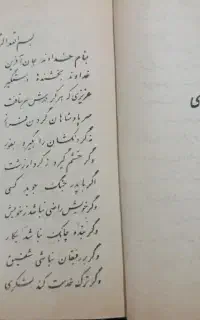 بسم الله الر
بنام خداوند جان آفرین
خداوند بخشندهٔ دستگیر
عزیزی که هرگز درش سر بتافت
سر پادشاهان گردن فراز
نه گردنکشان را بگیرد بفور
وگر خشم گیرد ز کردار زشت
اگر با پدر جنگ جوید کسی
وگر خویش راضی نباشد ز خویش
وگر بنده چابک نباشد بکار
وگر بر رفیقان نباشی شفیق
وگر ترک خدمت کند لشکری
ی